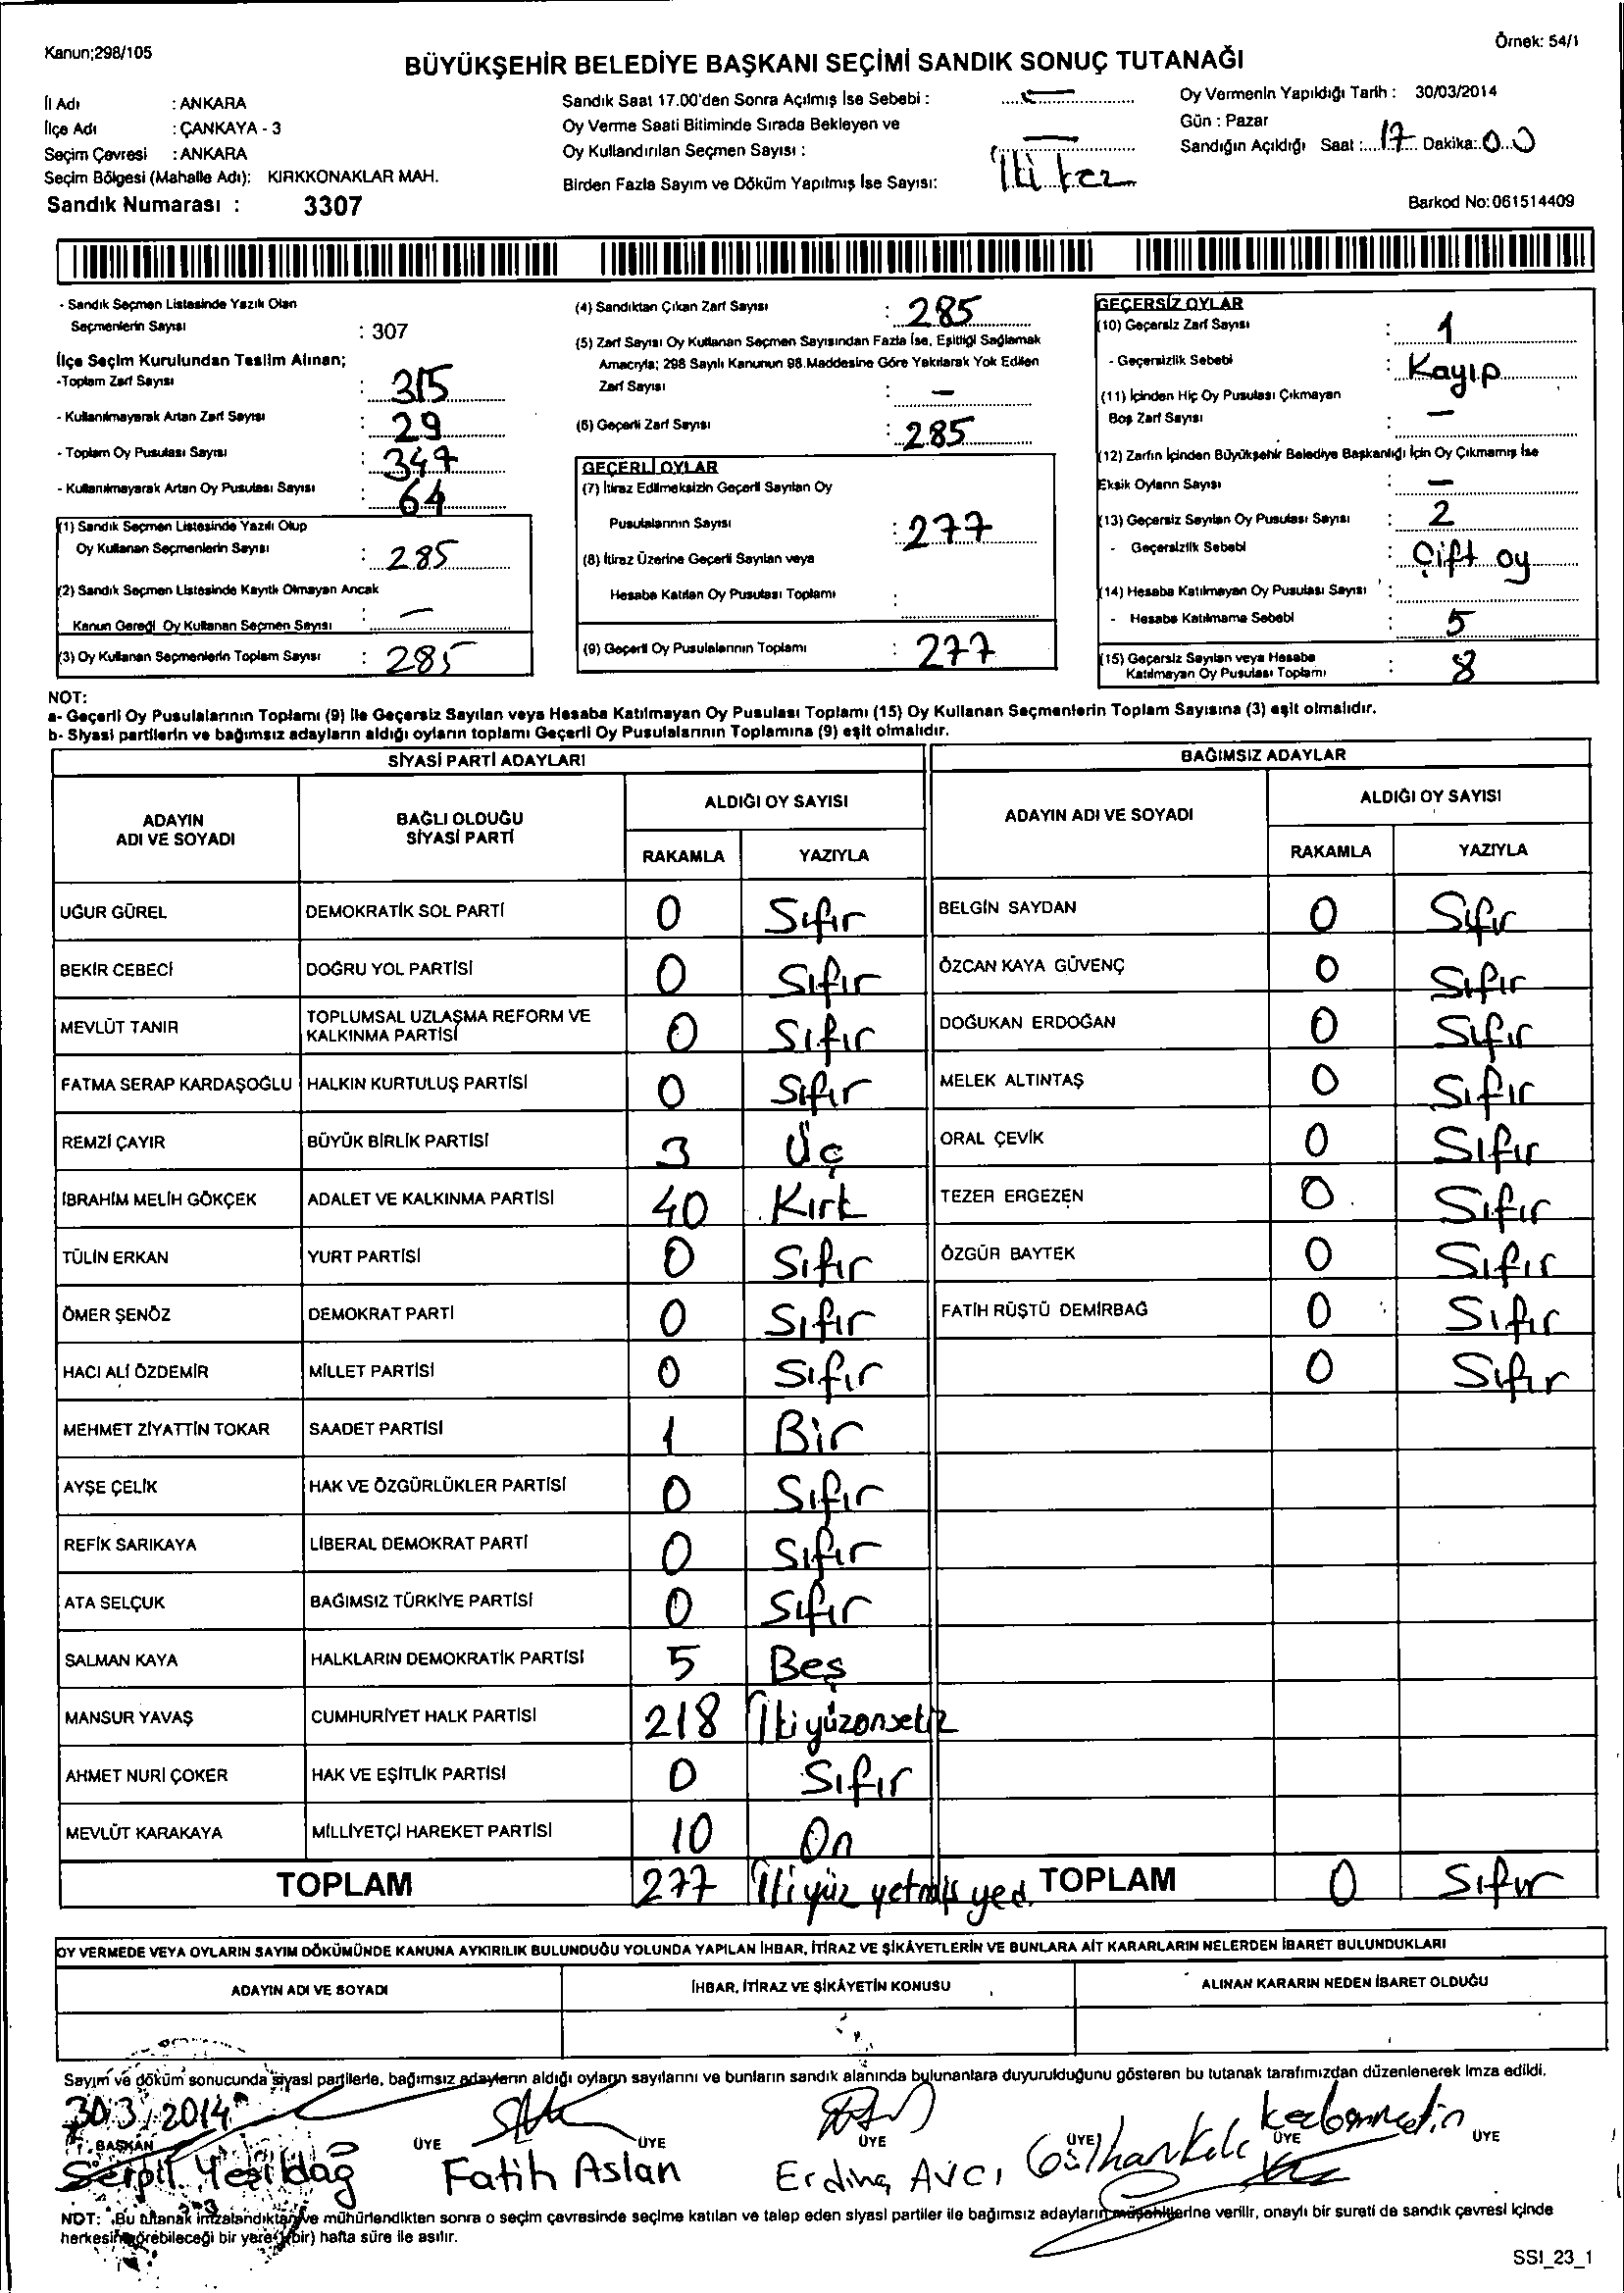 Kanun;298/105
Örnek: 54/1
BÜYÜKŞEHİR BELEDİYE BAŞKANI SEÇİMİ SANDIK SONUÇ TUTANAĞI
İl Adı : ANKARA
İlçe Adı : ÇANKAYA - 3
Seçim Çevresi : ANKARA
Seçim Bölgesi (Mahalle Adı): KIRKKONAKLAR MAH.
Sandık Numarası : 3307
Sandık Saat 17.00'den Sonra Açılmış İse Sebebi : —
Oy Verme Saati Bitiminde Sırada Bekleyen ve
Oy Kullandırılan Seçmen Sayısı : —
Birden Fazla Sayım ve Döküm Yapılmış İse Sayısı: İki kez
Oy Vermenin Yapıldığı Tarih : 30/03/2014
Gün : Pazar
Sandığın Açıldığı Saat : 17 Dakika: 00
Barkod No:061514409
- Sandık Seçmen Listesinde Yazılı Olan
Seçmenlerin Sayısı : 307
İlçe Seçim Kurulundan Teslim Alınan;
-Toplam Zarf Sayısı : 315
- Kullanılmayarak Artan Zarf Sayısı : 29
- Toplam Oy Pusulası Sayısı : 347
- Kullanılmayarak Artan Oy Pusulası Sayısı : 64
(1) Sandık Seçmen Listesinde Yazılı Olup
Oy Kullanan Seçmenlerin Sayısı : 285
(2) Sandık Seçmen Listesinde Kayıtlı Olmayan Ancak
Kanun Gereği Oy Kullanan Seçmen Sayısı : —
(3) Oy Kullanan Seçmenlerin Toplam Sayısı : 285
(4) Sandıktan Çıkan Zarf Sayısı : 285
(5) Zarf Sayısı Oy Kullanan Seçmen Sayısından Fazla İse, Eşitliği Sağlamak
Amacıyla; 298 Sayılı Kanunun 98.Maddesine Göre Yakılarak Yok Edilen
Zarf Sayısı : —
(6) Geçerli Zarf Sayısı : 285
GEÇERLİ OYLAR
(7) İtiraz Edilmeksizin Geçerli Sayılan Oy
Pusulalarının Sayısı : 277
(8) İtiraz Üzerine Geçerli Sayılan veya
Hesaba Katılan Oy Pusulası Toplamı :
(9) Geçerli Oy Pusulalarının Toplamı : 277
GEÇERSİZ OYLAR
(10) Geçersiz Zarf Sayısı : 1
- Geçersizlik Sebebi : Kayıp
(11) İçinden Hiç Oy Pusulası Çıkmayan
Boş Zarf Sayısı : —
(12) Zarfın İçinden Büyükşehir Belediye Başkanlığı İçin Oy Çıkmamış İse
Eksik Oyların Sayısı : —
(13) Geçersiz Sayılan Oy Pusulası Sayısı : 2
- Geçersizlik Sebebi : Çift oy
(14) Hesaba Katılmayan Oy Pusulası Sayısı :
- Hesaba Katılmama Sebebi : 5
(15) Geçersiz Sayılan veya Hesaba
Katılmayan Oy Pusulası Toplamı : 8
NOT:
a- Geçerli Oy Pusulalarının Toplamı (9) ile Geçersiz Sayılan veya Hesaba Katılmayan Oy Pusulası Toplamı (15) Oy Kullanan Seçmenlerin Toplam Sayısına (3) eşit olmalıdır.
b- Siyasi partilerin ve bağımsız adayların aldığı oyların toplamı Geçerli Oy Pusulalarının Toplamına (9) eşit olmalıdır.
SİYASİ PARTİ ADAYLARI BAĞIMSIZ ADAYLAR
ADAYIN ADI VE SOYADI BAĞLI OLDUĞU SİYASİ PARTİ ALDIĞI OY SAYISI ADAYIN ADI VE SOYADI ALDIĞI OY SAYISI
RAKAMLA YAZIYLA RAKAMLA YAZIYLA
UĞUR GÜREL DEMOKRATİK SOL PARTİ 0 Sıfır BELGİN SAYDAN 0 Sıfır
BEKİR CEBECİ DOĞRU YOL PARTİSİ 0 Sıfır ÖZCAN KAYA GÜVENÇ 0 Sıfır
MEVLÜT TANIR TOPLUMSAL UZLAŞMA REFORM VE KALKINMA PARTİSİ 0 Sıfır DOĞUKAN ERDOĞAN 0 Sıfır
FATMA SERAP KARDAŞOĞLU HALKIN KURTULUŞ PARTİSİ 0 Sıfır MELEK ALTINTAŞ 0 Sıfır
REMZİ ÇAYIR BÜYÜK BİRLİK PARTİSİ 3 Üç ORAL ÇEVİK 0 Sıfır
İBRAHİM MELİH GÖKÇEK ADALET VE KALKINMA PARTİSİ 40 Kırk TEZER ERGEZEN 0 Sıfır
TÜLİN ERKAN YURT PARTİSİ 0 Sıfır ÖZGÜR BAYTEK 0 Sıfır
ÖMER ŞENÖZ DEMOKRAT PARTİ 0 Sıfır FATİH RÜŞTÜ DEMİRBAĞ 0 Sıfır
HACI ALİ ÖZDEMİR MİLLET PARTİSİ 0 Sıfır 0 Sıfır
MEHMET ZİYATTİN TOKAR SAADET PARTİSİ 1 Bir
AYŞE ÇELİK HAK VE ÖZGÜRLÜKLER PARTİSİ 0 Sıfır
REFİK SARIKAYA LİBERAL DEMOKRAT PARTİ 0 Sıfır
ATA SELÇUK BAĞIMSIZ TÜRKİYE PARTİSİ 0 Sıfır
SALMAN KAYA HALKLARIN DEMOKRATİK PARTİSİ 5 Beş
MANSUR YAVAŞ CUMHURİYET HALK PARTİSİ 218 İkiyüzonsekiz
AHMET NURİ ÇOKER HAK VE EŞİTLİK PARTİSİ 0 Sıfır
MEVLÜT KARAKAYA MİLLİYETÇİ HAREKET PARTİSİ 10 On
TOPLAM 277 İkiyüz yetmiş yedi TOPLAM 0 Sıfır
OY VERMEDE VEYA OYLARIN SAYIM DÖKÜMÜNDE KANUNA AYKIRILIK BULUNDUĞU YOLUNDA YAPILAN İHBAR, İTİRAZ VE ŞİKÂYETLERİN VE BUNLARA AİT KARARLARIN NELERDEN İBARET BULUNDUKLARI
ADAYIN ADI VE SOYADI İHBAR, İTİRAZ VE ŞİKÂYETİN KONUSU ALINAN KARARIN NEDEN İBARET OLDUĞU
Sayım ve döküm sonucunda siyasi partilerle, bağımsız adayların aldığı oyların sayılarını ve bunların sandık alanında bulunanlara duyurulduğunu gösteren bu tutanak tarafımızdan düzenlenerek imza edildi.
30/3/2014
BAŞKAN ÜYE ÜYE ÜYE ÜYE ÜYE ÜYE
Serpil Yeşildağ Fatih Aslan Erdinç AVCI
NOT: Bu tutanak imzalandıktan ve mühürlendikten sonra o seçim çevresinde seçime katılan ve talep eden siyasi partiler ile bağımsız adayların müşahitlerine verilir, onaylı bir sureti de sandık çevresi içinde
herkesin görebileceği bir yere (bir) hafta süre ile asılır.
SSI_23_1